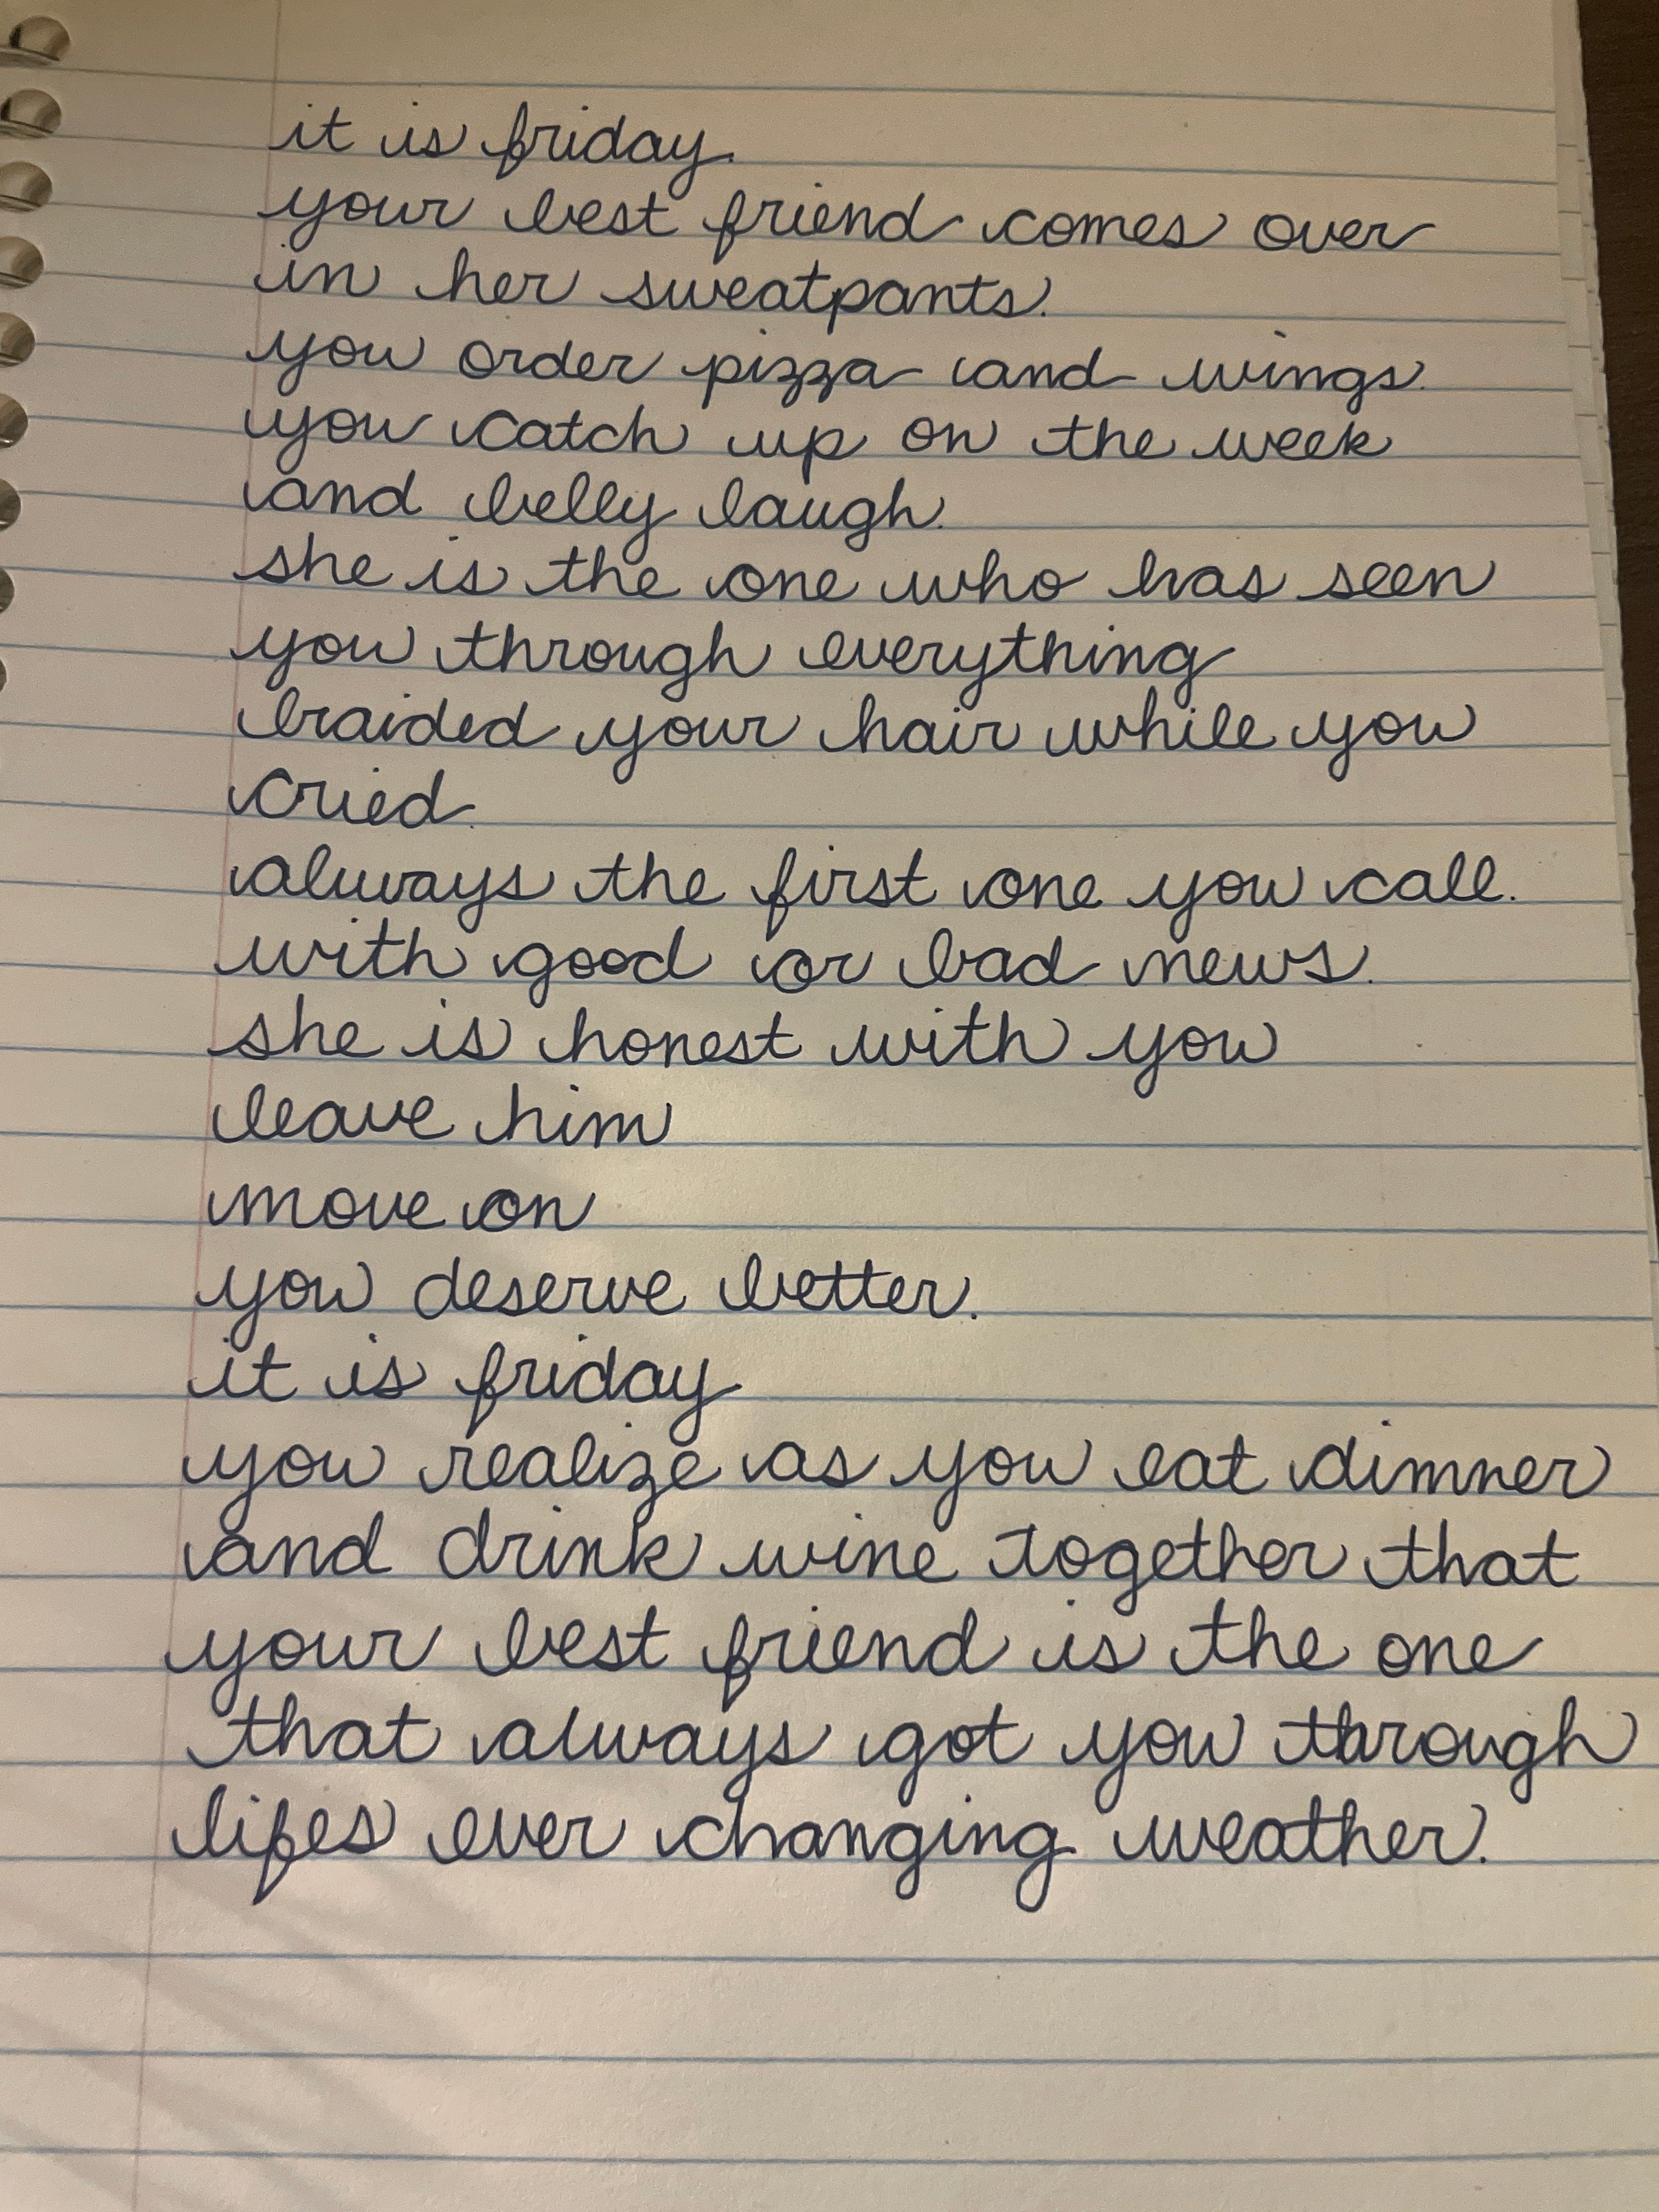 it is friday.
your best friend comes over
in her sweatpants.
you order pizza and wings.
you catch up on the week
and belly laugh.
she is the one who has seen
you through everything
braided your hair while you
cried.
always the first one you call.
with good or bad news.
she is honest with you
leave him
move on
you deserve better.
it is friday
you realize as you eat dinner
and drink wine together that
your best friend is the one
that always got you through
lifes ever changing weather.